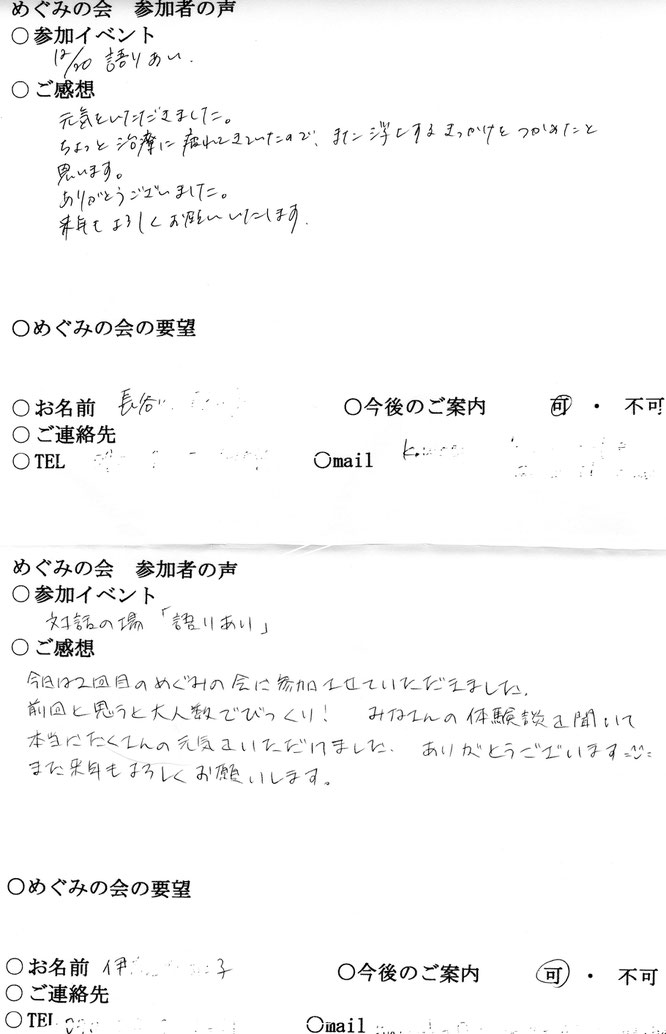 めぐみの会 参加者の声
○参加イベント
12/20 語りあい.
○ご感想
元気をいただきました。
ちょっと治療に疲れてきていたので、また浮上するきっかけをつかめたと
思います。
ありがとうございました。
来年もよろしくお願いいたします.
○めぐみの会の要望
○お名前 長谷 ○今後のご案内 可 ・ 不可
○ご連絡先
○TEL ○mail k.
めぐみの会 参加者の声
○参加イベント
対話の場「語りあい」
○ご感想
今日は2回目のめぐみの会に参加させていただきました.
前回と思うと大人数でびっくり! みなさんの体験談を聞いて
本当にたくさんの元気をいただけました. ありがとうございます
また来年もよろしくお願いします。
○めぐみの会の要望
○お名前 伊 子 ○今後のご案内 可 ・ 不可
○ご連絡先
○TEL ○mail